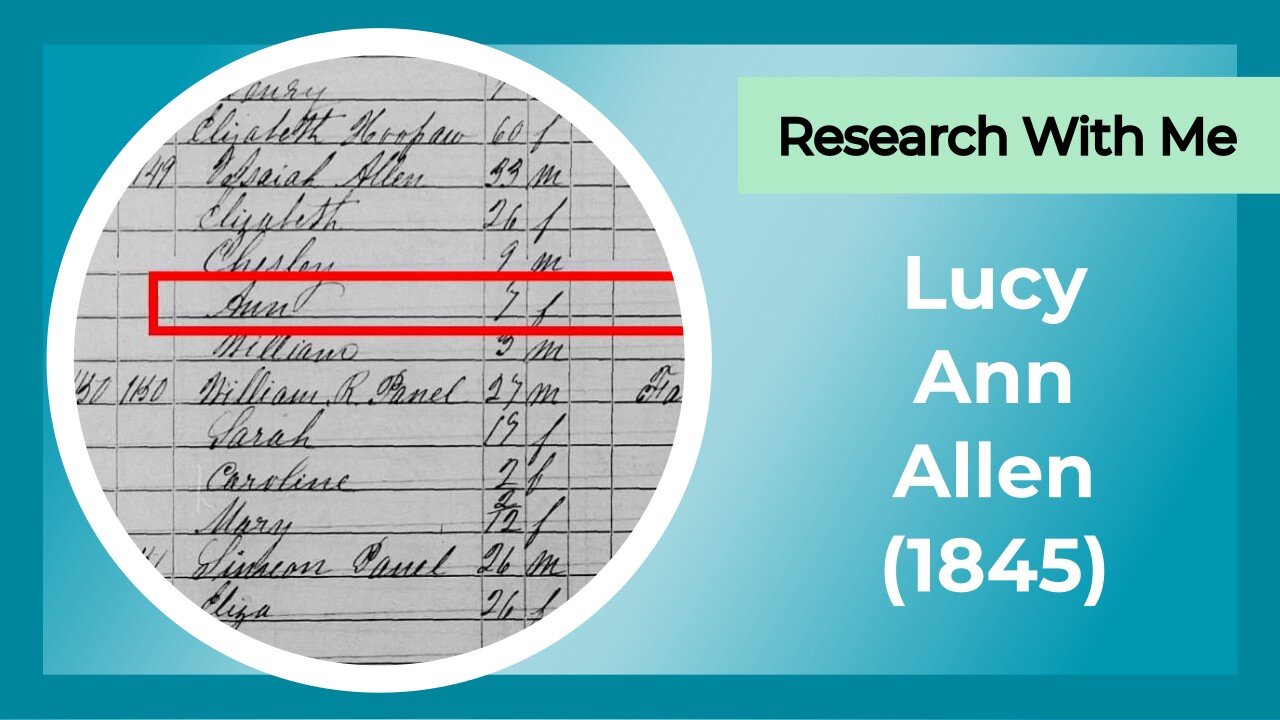 Henry
Elizabeth Hoopaw 60 f
149 Isaiah Allen 33 m
Elizabeth 26 f
Chesley 9 m
Ann 7 f
William 3 m
1150 William R. Panel 27 m Fa
Sarah 19 f
Caroline 2 f
Mary 2/12 f
Simeon Panel 26 m
Eliza 26 f
Research With Me
Lucy
Ann
Allen
(1845)